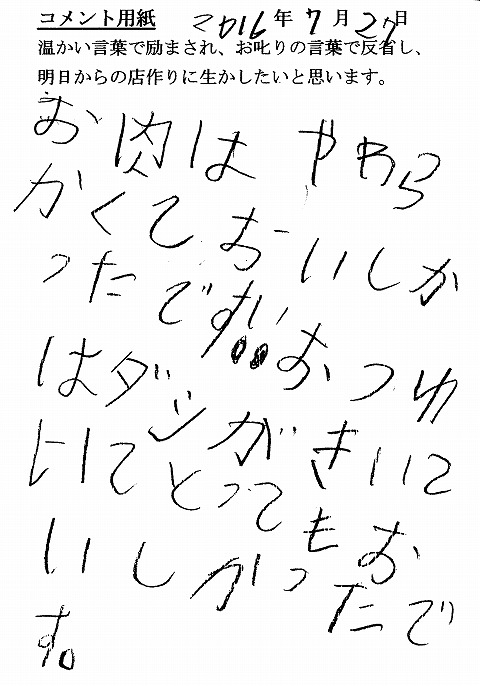 コメント用紙 2016年7月27日
温かい言葉で励まされ、お叱りの言葉で反省し、
明日からの店作りに生かしたいと思います。
お肉は やわら
かくておいしか
ったです!!おつゆ
はダシがきいて
いてとってもお
いしかったで
す。